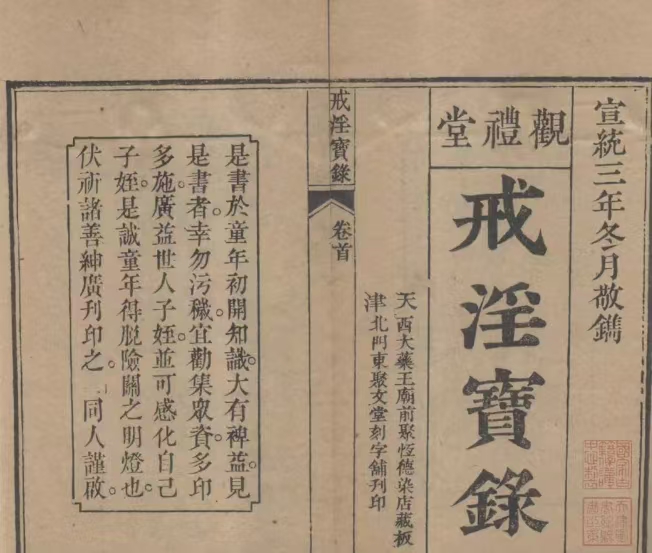 宣統三年冬月敬鐫
觀禮堂
戒淫寶錄
天津
西大藥王廟前聚恆德染店藏板
北門東聚文堂刻字舖刊印
戒淫寶錄
卷首
是書於童年初開知識。大有裨益。見
是書者。幸勿污穢。宜勸集眾資。多印
多施。廣益世人子姪。並可感化自己
子姪。是誠童年得脫險關之明燈也。
伏祈諸善紳廣刊印之。「同人謹啟